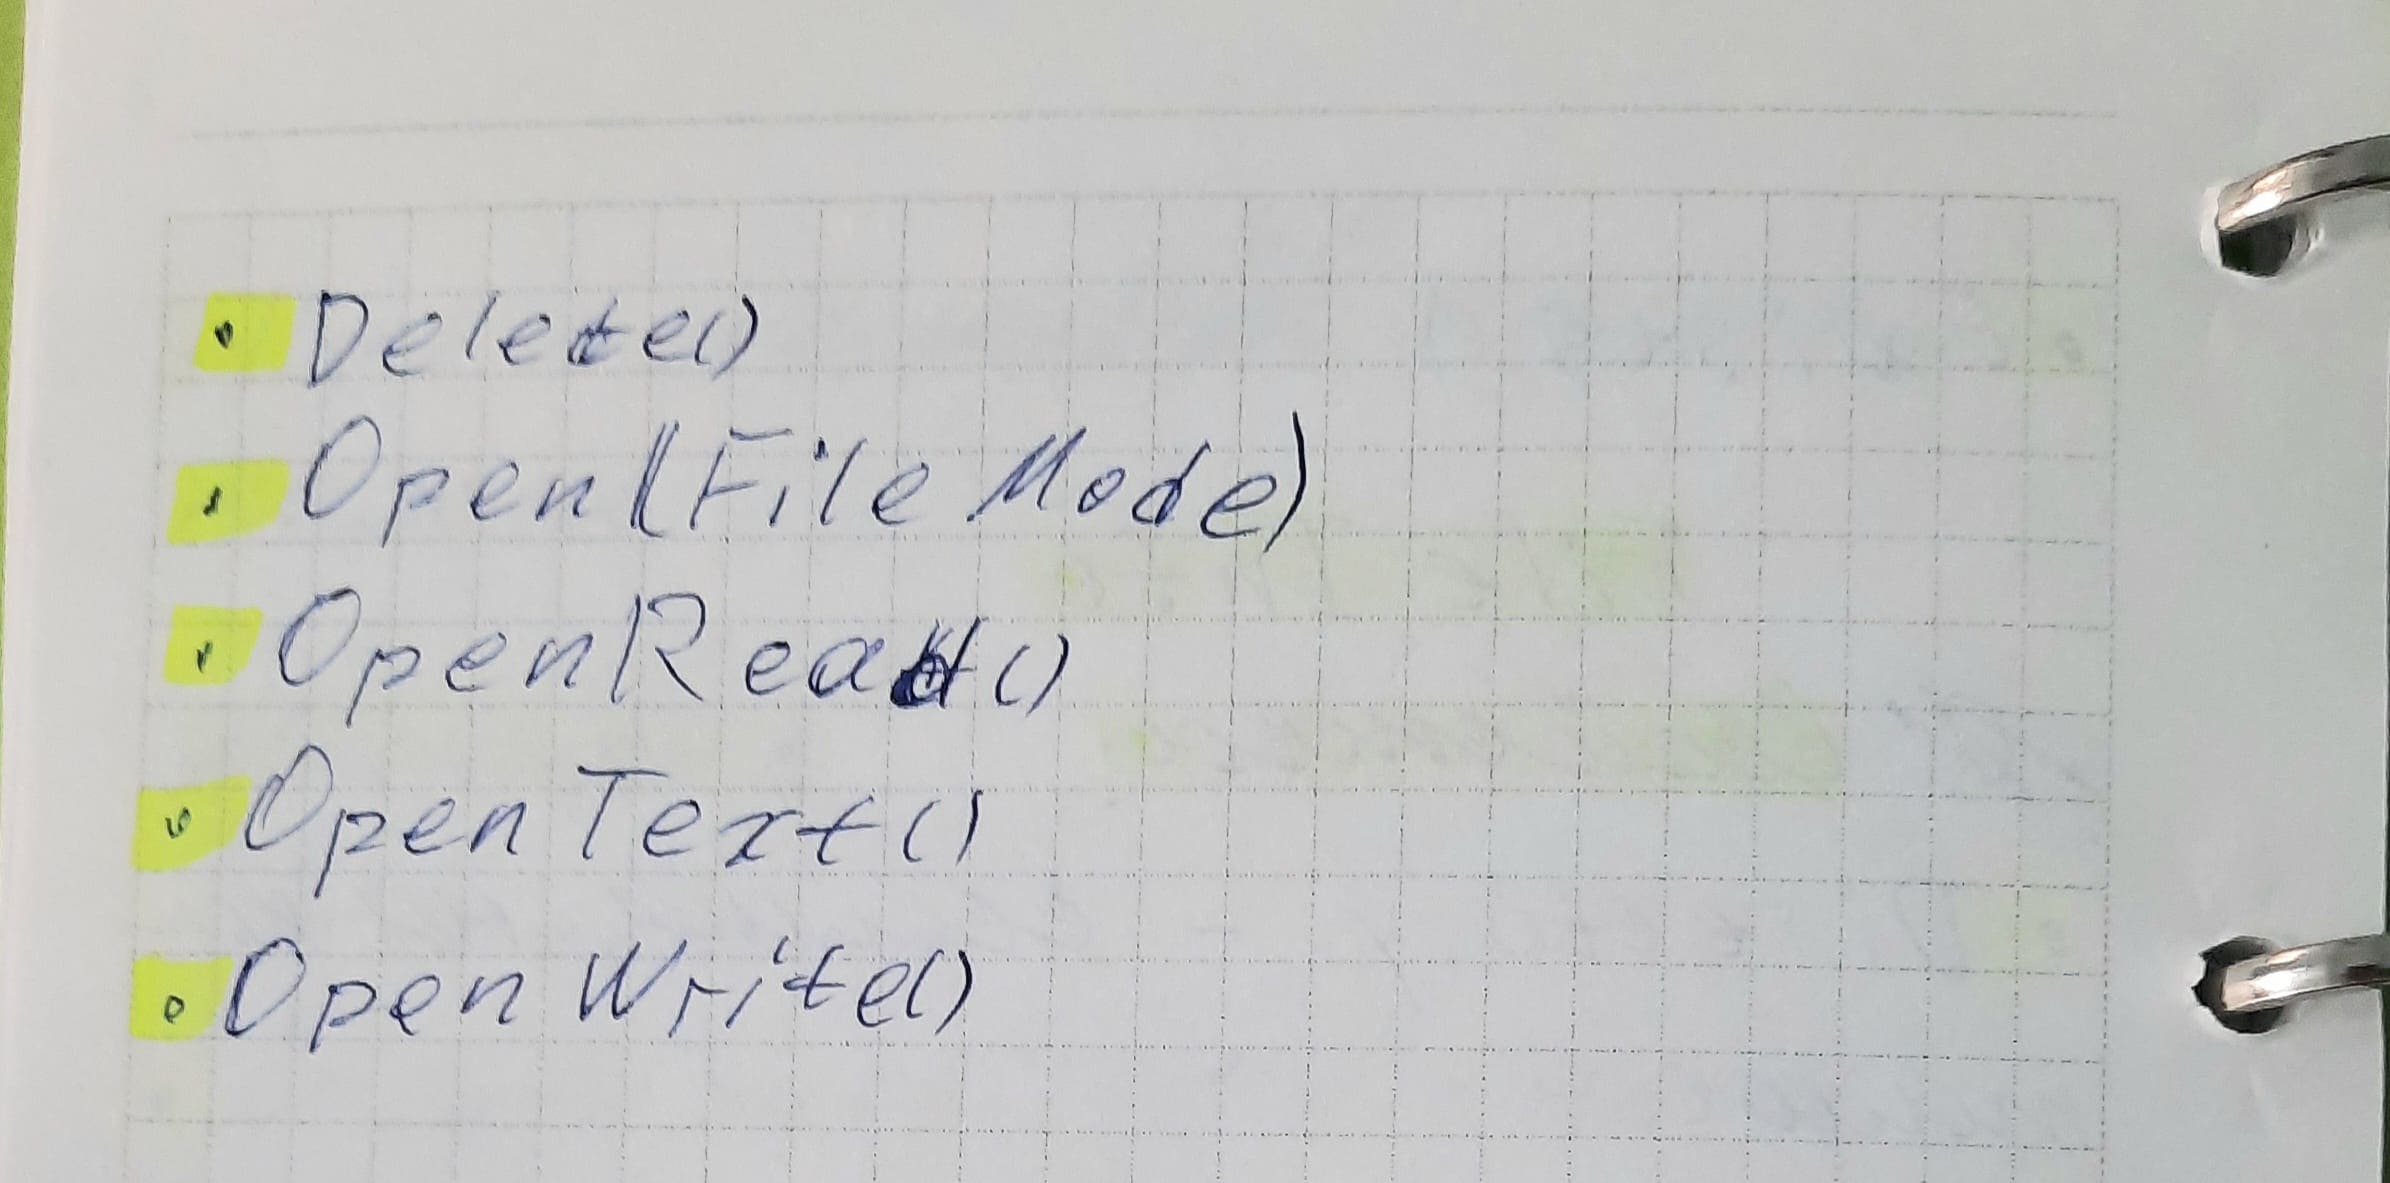 • Delete()
• Open(FileMode)
• OpenRead()
• OpenText()
• OpenWrite()